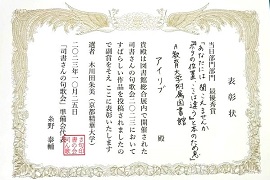 表彰状
当日部門部門　最優秀賞
「あなたには　聞こえませんか
A教育大学附属図書館
アイリブ　殿
貴殿は図書館総合展内で開催された
「司書さんの句歌会」二〇二二において
すばらしい作品を投稿されましたの
で副賞をそえ ここに表彰いたします
二〇二三年一〇月二五日
選者　木川田朱美（京都精華大学）
「司書さんの句歌会」準備会代表
糸野　泰輔